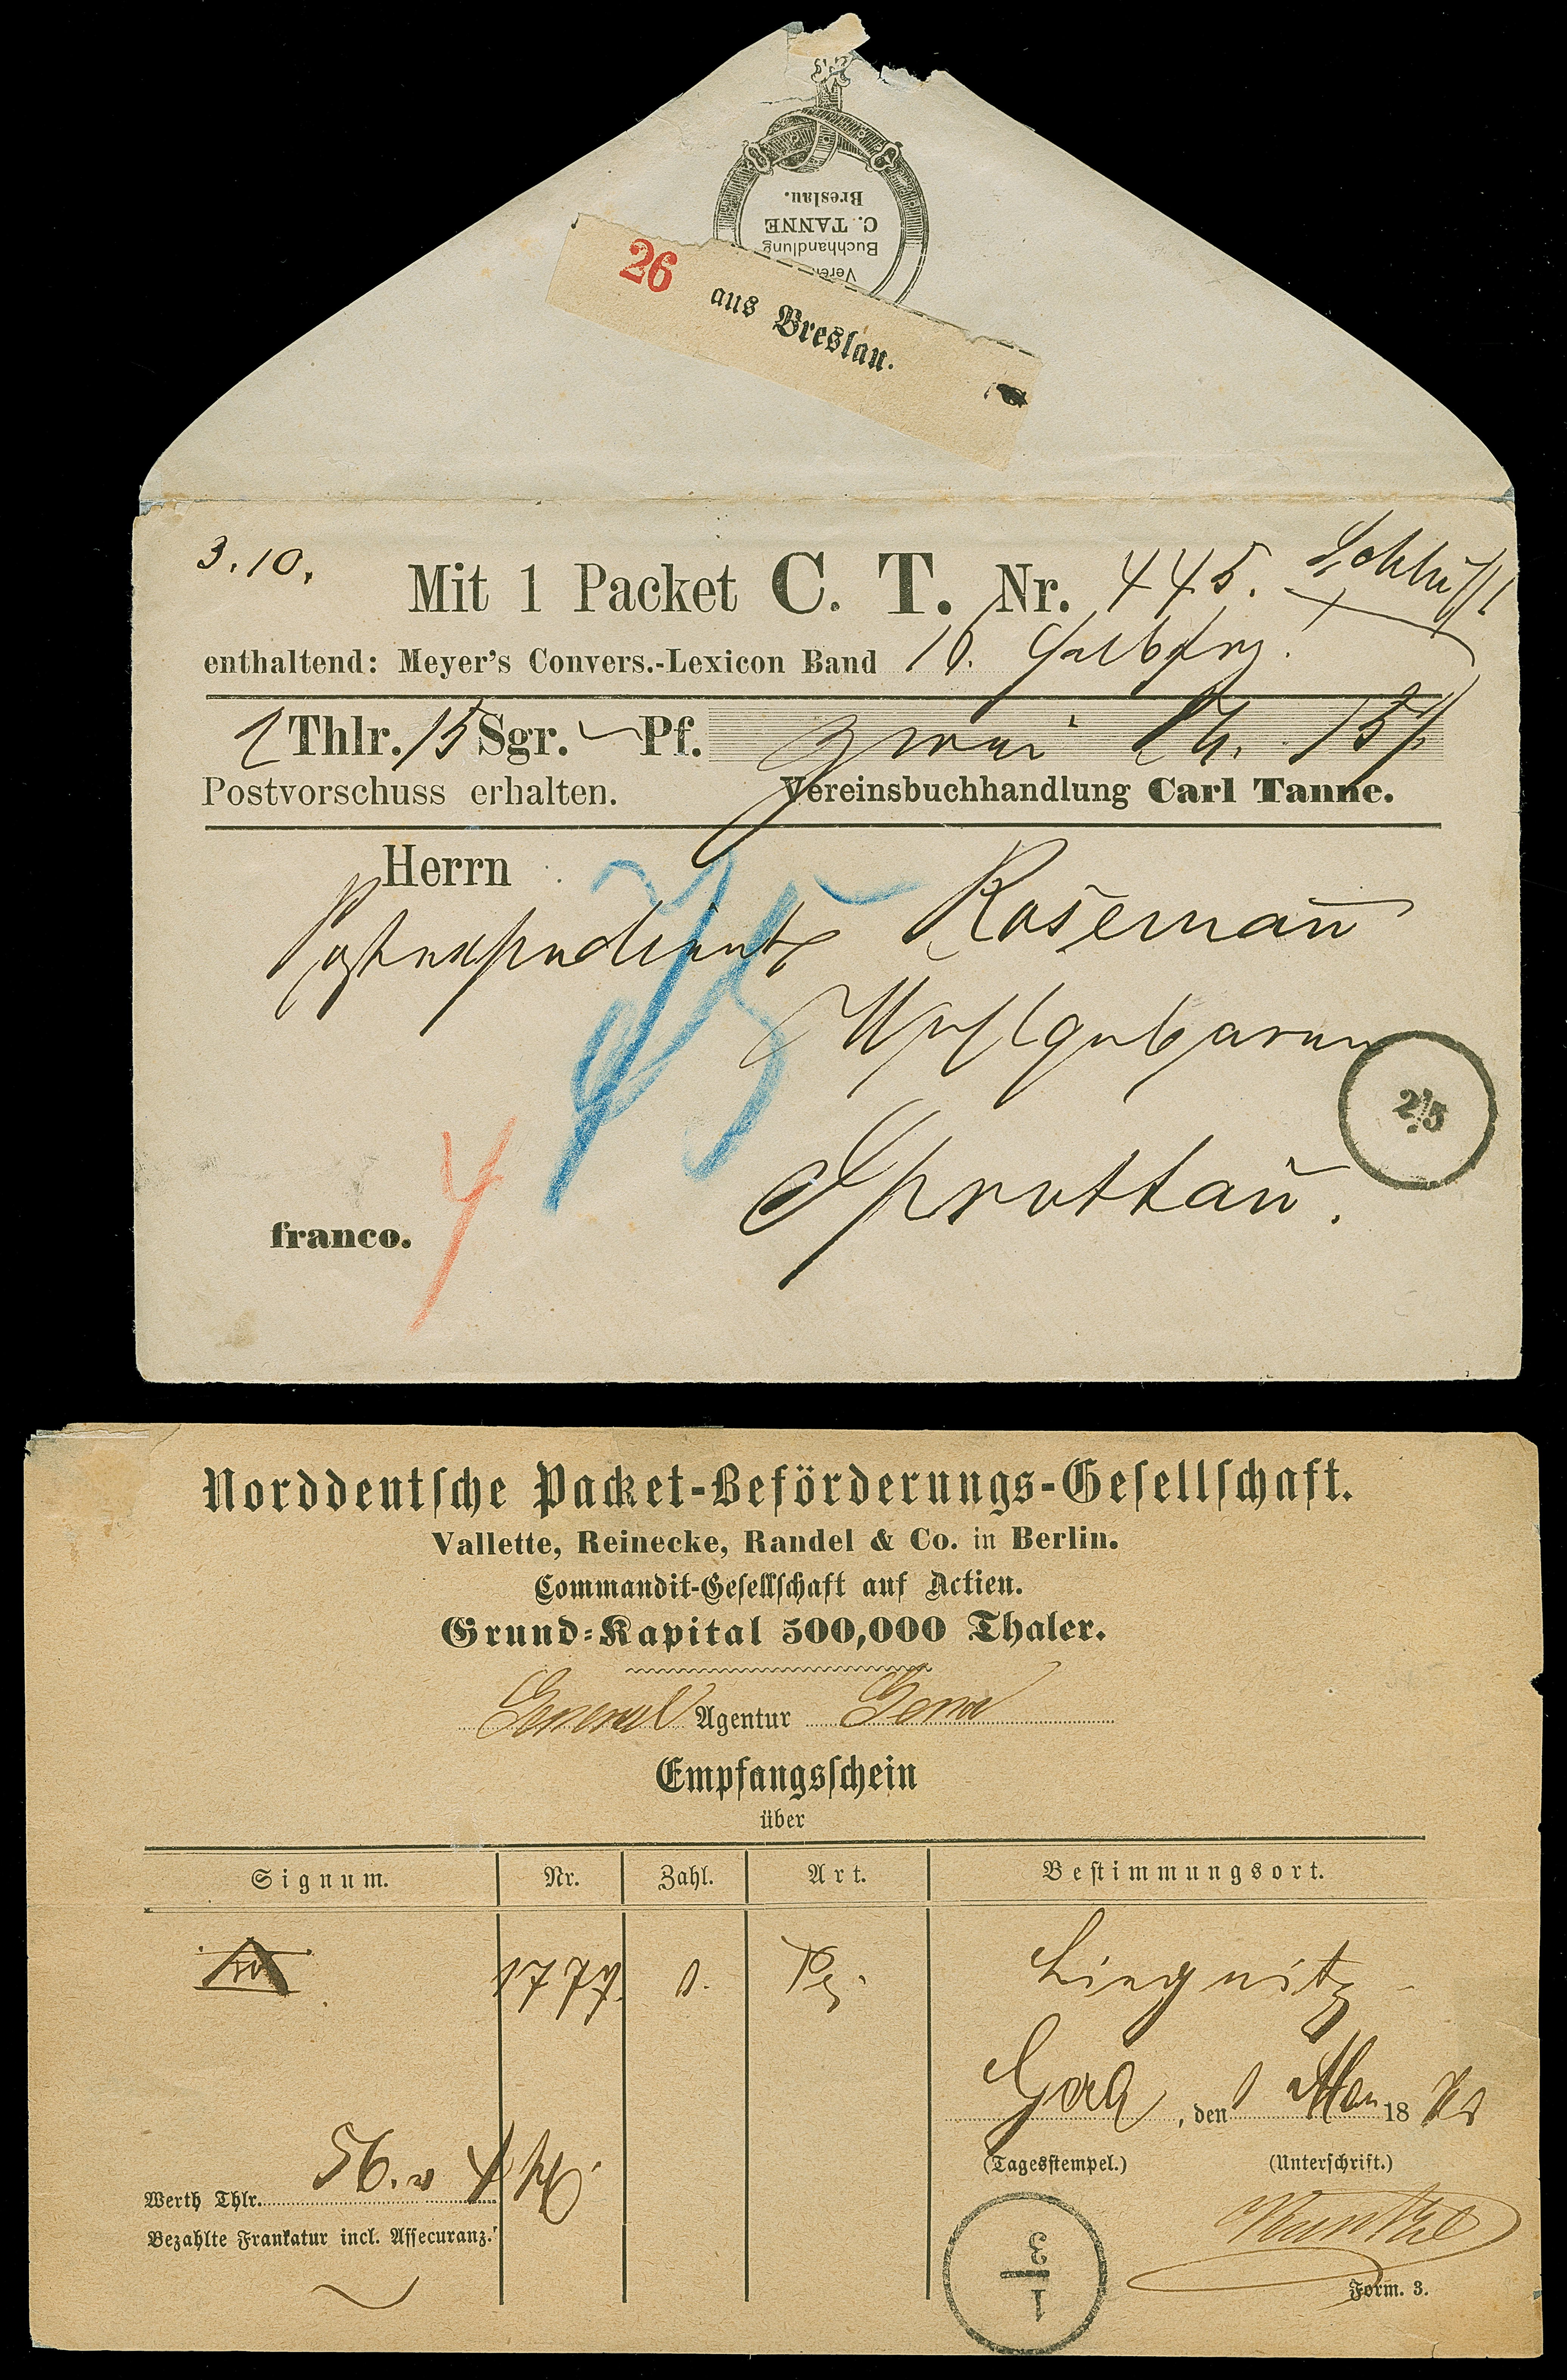 Breslau.
C. TANNE
Buchhandlung
Verein
26 aus Breslau.
3.10.
Mit 1 Packet C. T. Nr. 445.
enthaltend: Meyer's Convers.-Lexicon Band 10. Halbfrz.
2 Thlr. 15 Sgr. — Pf. zwei Th. 15 Sg
Postvorschuss erhalten. Vereinsbuchhandlung Carl Tanne.
Herrn
Postexpedient Rosemañ
Wohlgeboren
25
Sprottau.
franco. 4
Norddeutsche Packet-Beförderungs-Gesellschaft.
Vallette, Reinecke, Randel & Co. in Berlin.
Commandit-Gesellschaft auf Actien.
Grund-Kapital 500,000 Thaler.
General Agentur Gera
Empfangsschein
über
Signum. Nr. Zahl. Art. Bestimmungsort.
1777. 1. Pc. Liegnitz
Gera, den 1 März 18
(Tagesstempel.) (Unterschrift.)
Werth Thlr. 56.
Bezahlte Frankatur incl. Assecuranz.
1
3
Form. 3.